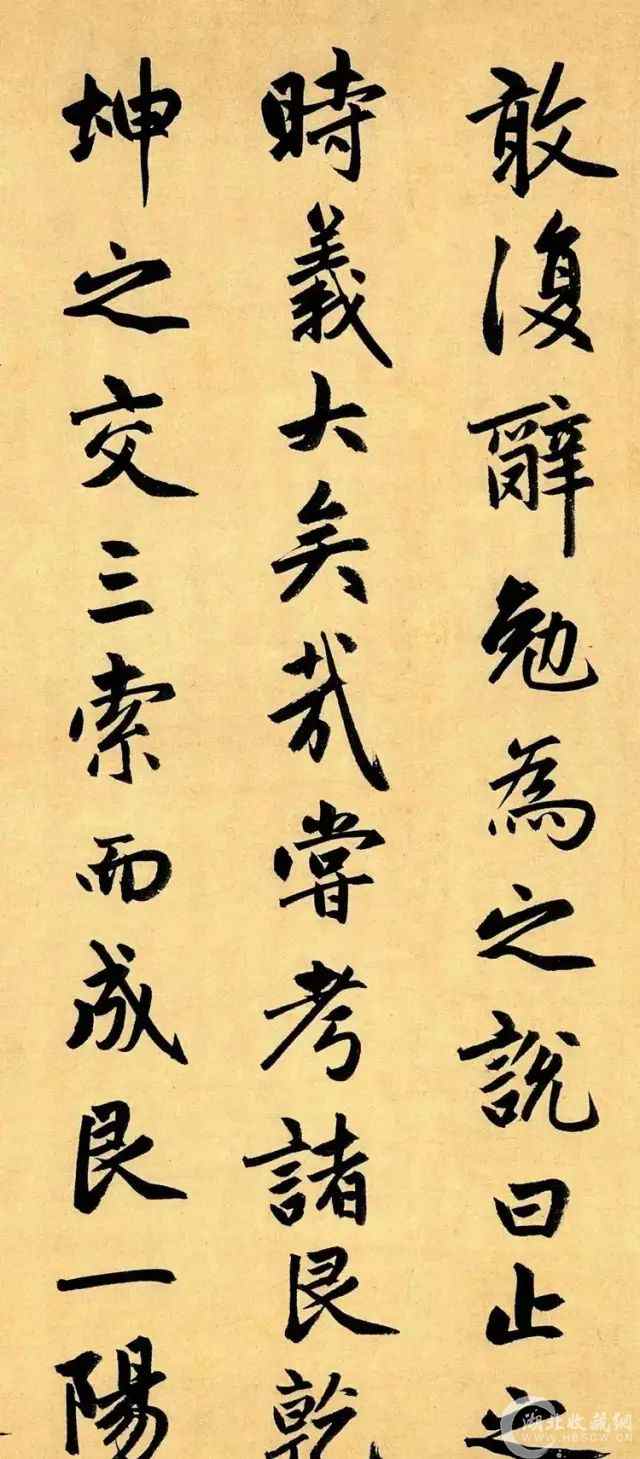 敢復辭勉為之說曰止之
時義大矣哉嘗考諸艮乾
坤之交三索而成艮一陽
湖北收藏網
www.HBSCW.CN